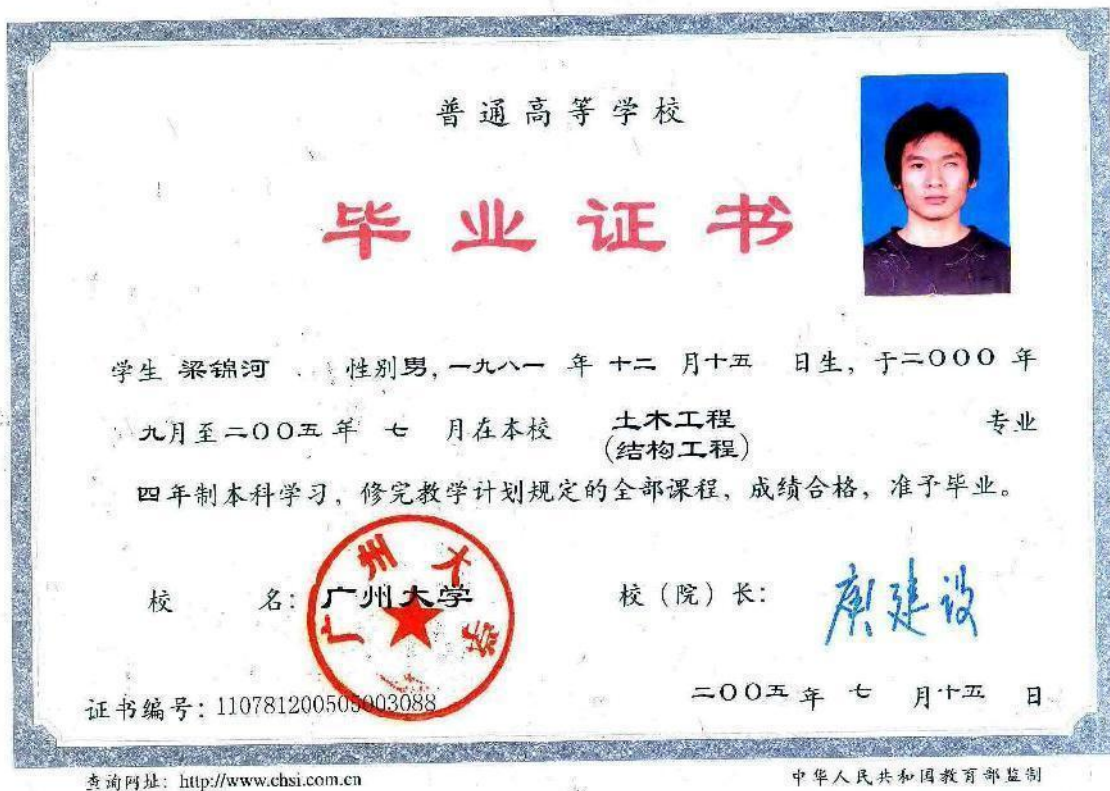 普通高等学校
毕业证书
学生 梁锦河 性别男，一九八一 年 十二 月十五 日生，于二〇〇〇 年
九月至二〇〇五 年 七 月在本校 土木工程 专业
(结构工程)
四年制本科学习，修完教学计划规定的全部课程，成绩合格，准予毕业。
校 名：广州大学 校（院）长：庾建设
广州大学
证书编号：110781200505003088 二〇〇五 年 七 月十五 日
查询网址：http://www.chsi.com.cn 中华人民共和国教育部监制